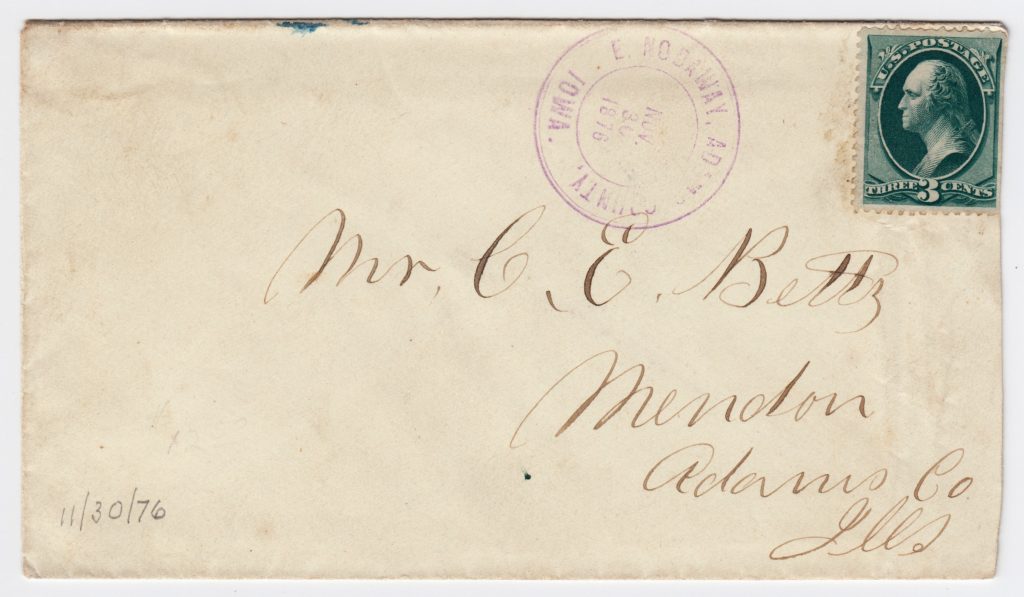 E. NODAWAY, ADAMS COUNTY, IOWA.
NOV.
30
1876
U.S. POSTAGE
THREE 3 CENTS
Mr. C. E. Betts
Mendon
Adams Co
Ills
11/30/76